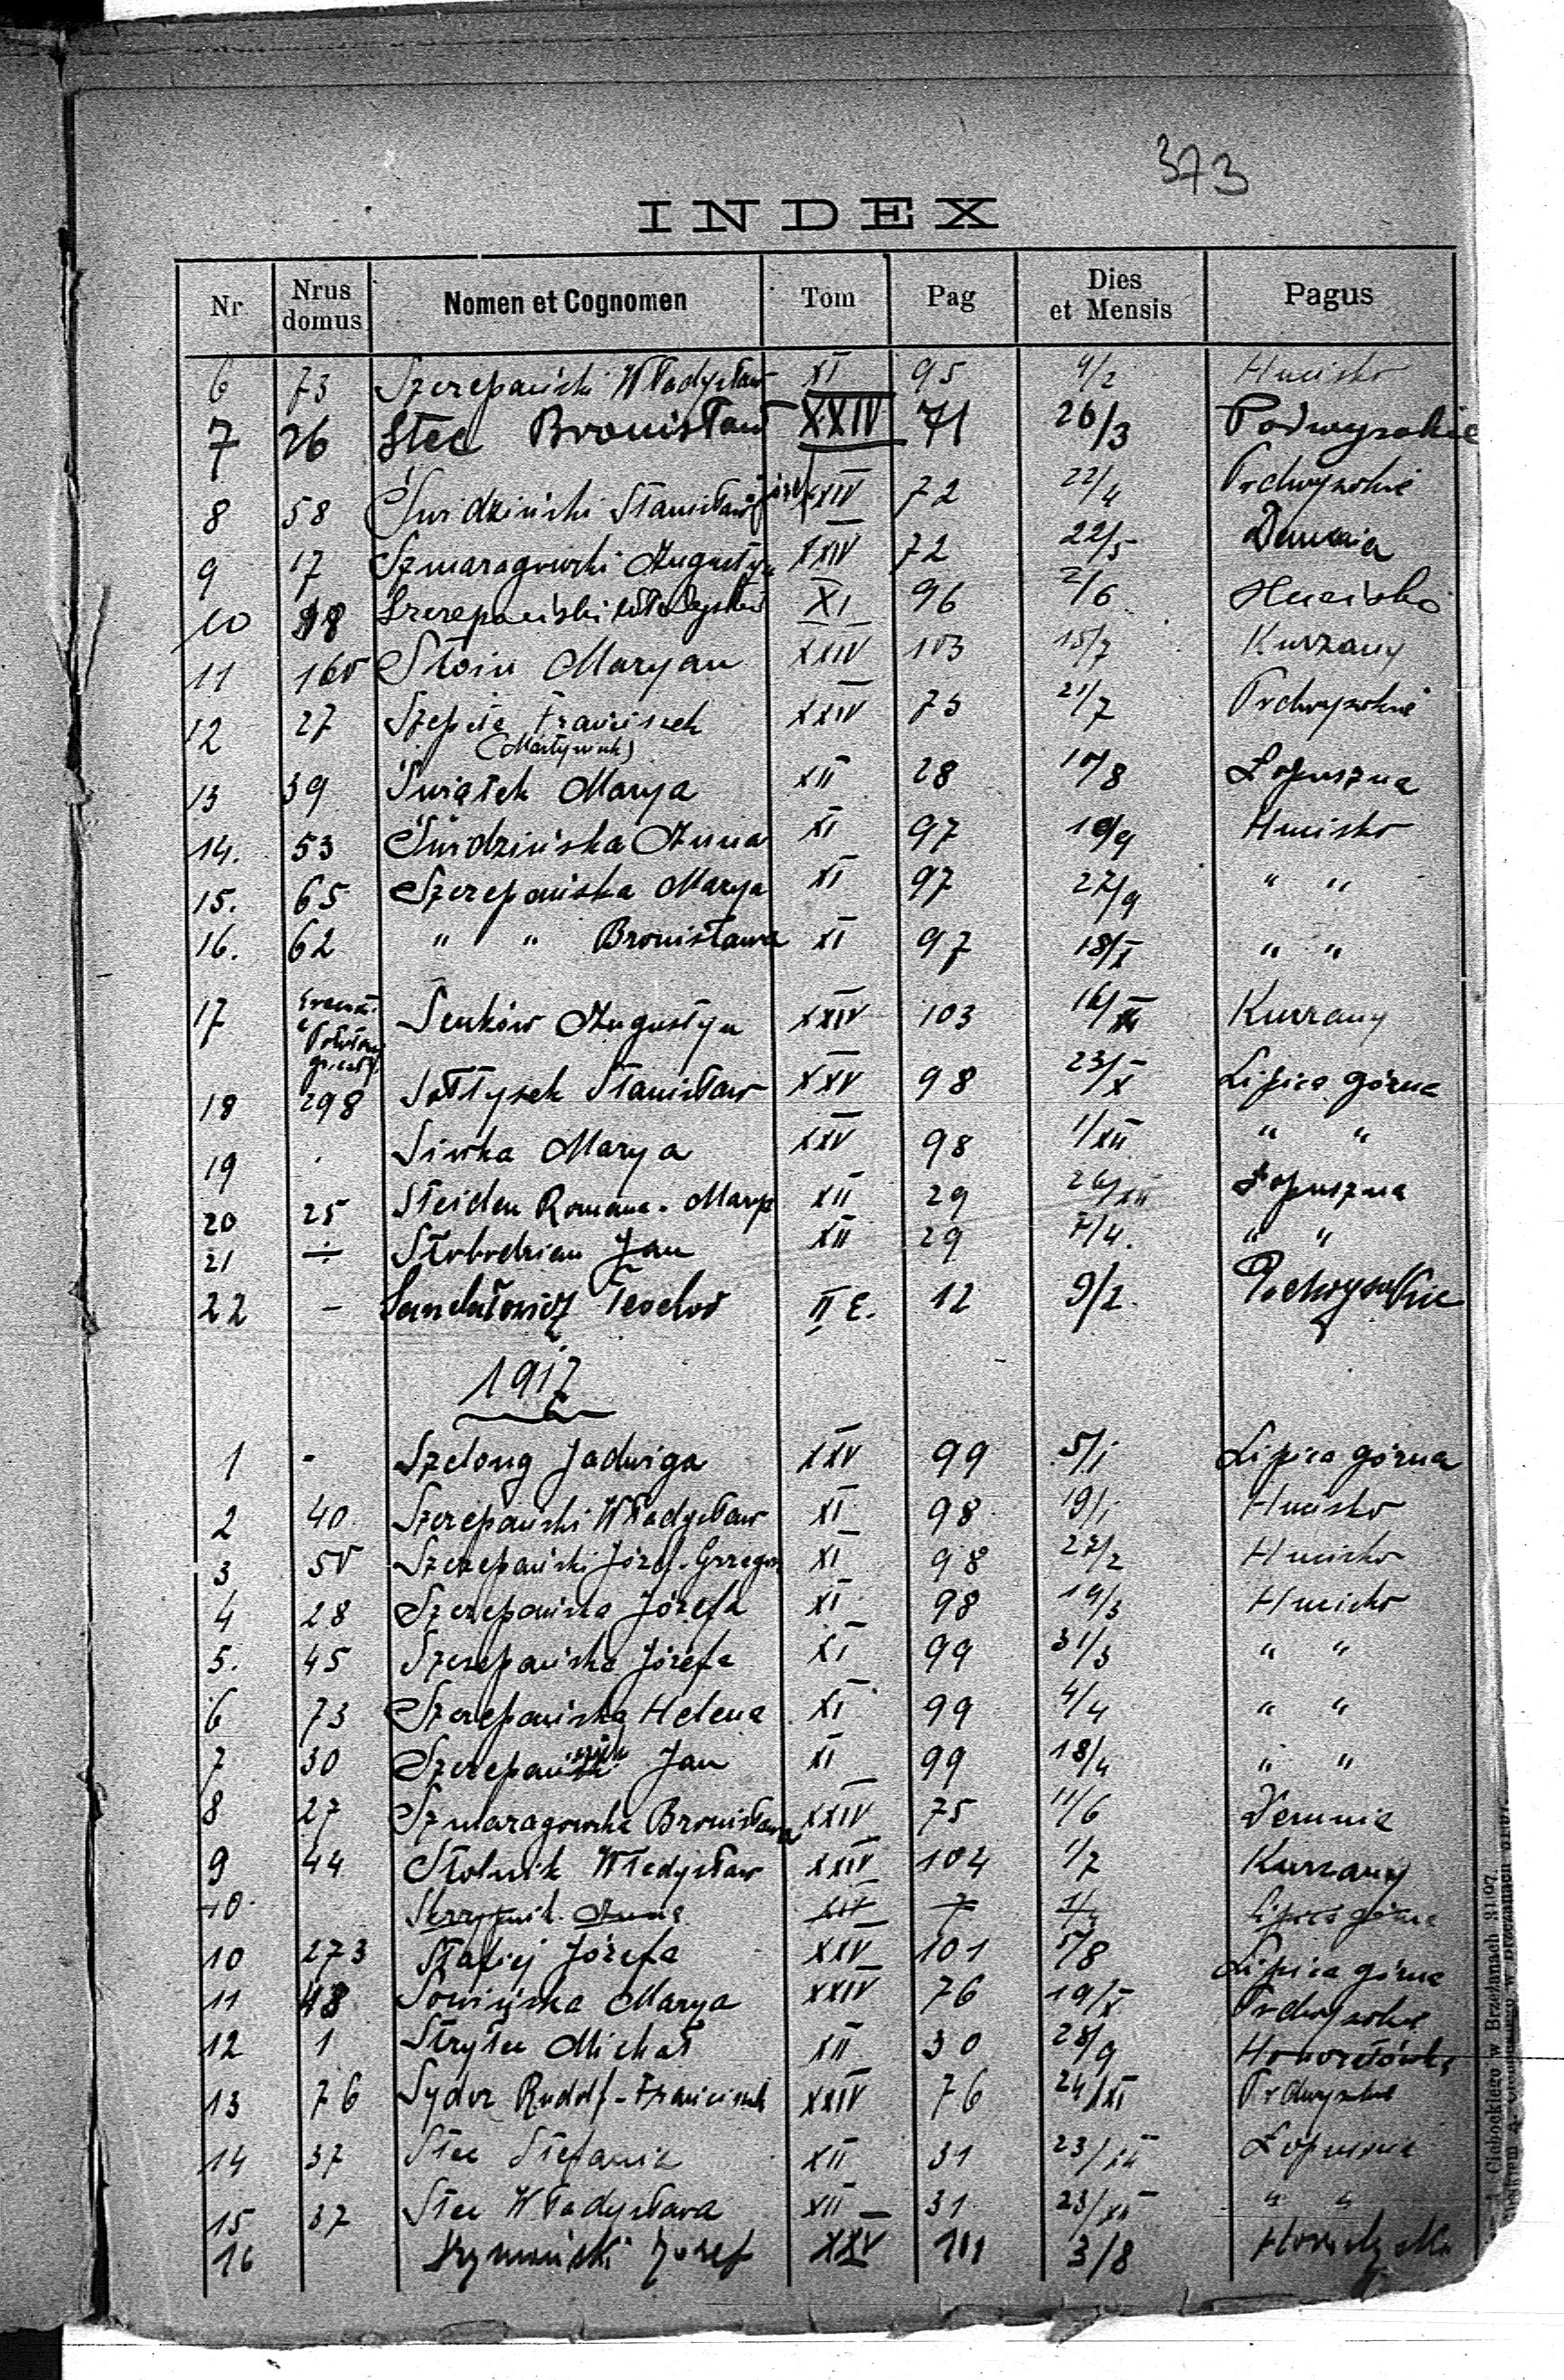 373
INDEX
Nr Nrus domus Nomen et Cognomen Tom Pag Dies et Mensis Pagus
6 73 Szczepański Władysław XI 95 4/2 Hucisko
7 26 Stec Bronisław XXIV 71 26/3 Podwysokie
8 58 Świdziński Stanisław XXIV 72 22/4 Podwysokie
9 17 Szmaragowski Augustyn XXIV 72 22/5 Demnia
10 98 Szczepański XI 96 2/6 Hucisko
11 Stoin Maryan XXIV 103 15/7 Kurzany
12 27 Franciszek XXIV 73 21/7 Podwysokie
(Martyniuk)
13 39 Świątek Marya XII 28 10/8 Łopuszna
14. 53 Świdzińska Anna XI 97 10/9 Hucisko
15. 65 Szczepańska Marya XI 97 27/9 " "
16. 62 " " Bronisława XI 97 18/X " "
17 Seńków Augustyn XXIV 103 16/XI Kurzany
18 298 Sołtysek Stanisław XXV 98 23/X Lipica górna
19 . Siwka Marya XXV 98 1/XII " "
20 25 Steiden Romana-Marya XII 29 26/XII Łopuszna
21 ÷ Słobodzian Jan XII 29 7/4. " "
22 - Teodor II E. 12 9/2. Podwysokie
1917
1 - Szelong Jadwiga XXV 99 5/I Lipica górna
2 40. Szczepański Władysław XI 98 19/I Hucisko
3 50 Szczepański Józef-Grzegorz XI 98 27/2 Hucisko
4 28 Szczepańska Józefa XI 98 19/3 Hucisko
5. 45 Szczepańska Józefa XI 99 31/3 " "
6 73 Szczepańska Helena XI 99 4/4 " "
7 30 Jan XI 99 18/4 " "
8 27 Szmaragowska Bronisława XXIV 75 11/6 Demnia
9 44 Stolnik Władysław XXIV 104 1/7 Kurzany
10. Anna XIV 7 Lipica górna
10 273 Stafiej Józefa XXV 101 5/8 Lipica górna
11 48 Sowińska Marya XXIV 76 19/X Podwysokie
12 1 Michał XII 30 28/9 Honoratówka
13 76 Sydor Rudolf-Franciszek XXIV 76 24/XI Podwysokie
14 37 Stec Stefania XII 31 23/XII Łopuszna
15 37 Stec Władysława XII 31 23/XII " "
16 Szymański Józef XXV 3/8